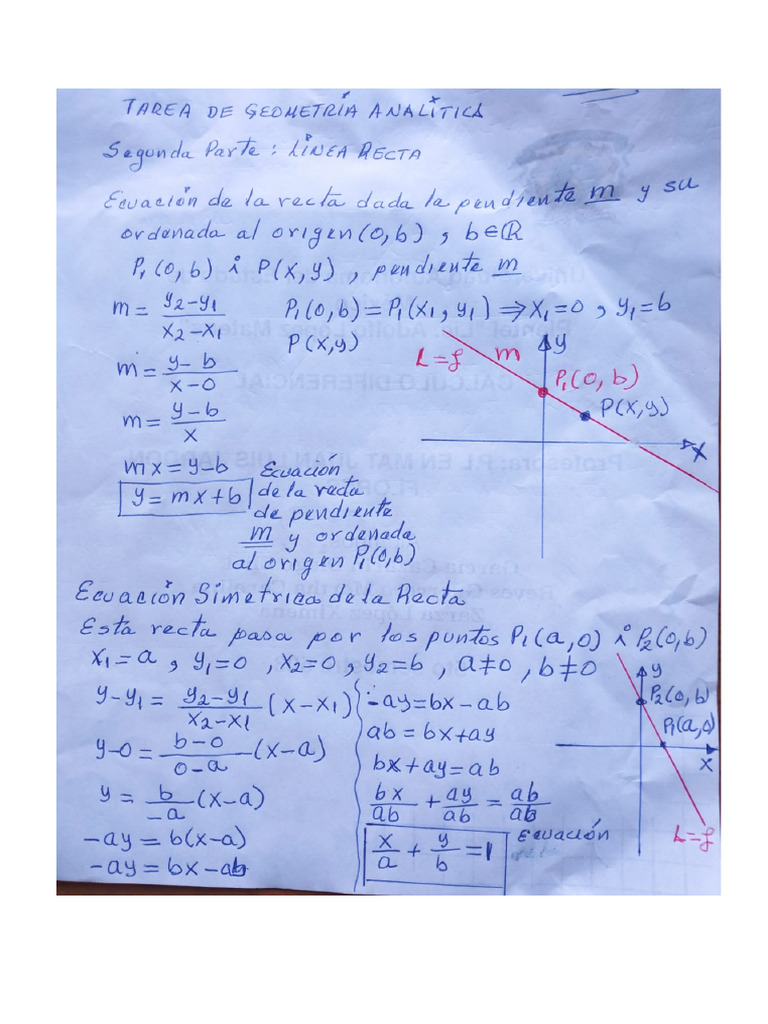 TAREA DE GEOMETRÍA ANALÍTICA
Segunda Parte: LÍNEA RECTA
Ecuación de la recta dada la pendiente m y su
ordenada al origen (0,b) , b∈ℝ
P₁(0,b) i P(x,y) , pendiente m
m = (y₂-y₁)/(x₂-x₁)
P₁(0,b) = P₁(x₁,y₁) ⇒ x₁=0 , y₁=b
P(x,y)
m = (y-b)/(x-0)
m = (y-b)/x
mx = y-b
y = mx+b
Ecuación
de la recta
de pendiente
m y ordenada
al origen P₁(0,b)
y
L=ℒ
m
P₁(0,b)
P(x,y)
x
Ecuación Simetrica de la Recta
Esta recta pasa por los puntos P₁(a,0) i P₂(0,b)
x₁=a , y₁=0 , x₂=0 , y₂=b , a≠0 , b≠0
y-y₁ = (y₂-y₁)/(x₂-x₁) (x-x₁)
y-0 = (b-0)/(0-a) (x-a)
y = b/-a (x-a)
-ay = b(x-a)
-ay = bx-ab
-ay = bx-ab
ab = bx+ay
bx+ay = ab
bx/ab + ay/ab = ab/ab
x/a + y/b = 1
Ecuación
y
P₂(0,b)
P₁(a,0)
x
L=ℒ